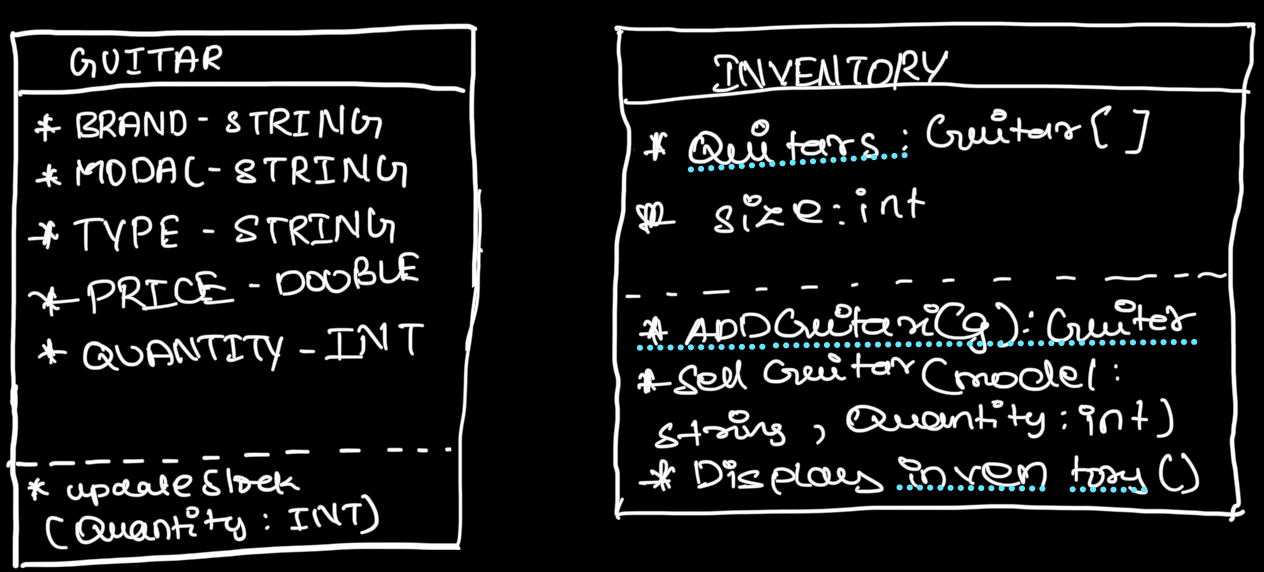 GUITAR
* BRAND - STRING
* MODAL - STRING
* TYPE - STRING
* PRICE - DOOBLE
* QUANTITY - INT
* updateStock
(Quantity : INT)
INVENTORY
* Quitars : Guitar [ ]
* size : int
* ADDGuitari(g) : Guiter
* Sell Guitar (model :
string , Quantity : int)
* Displays inven tory ()